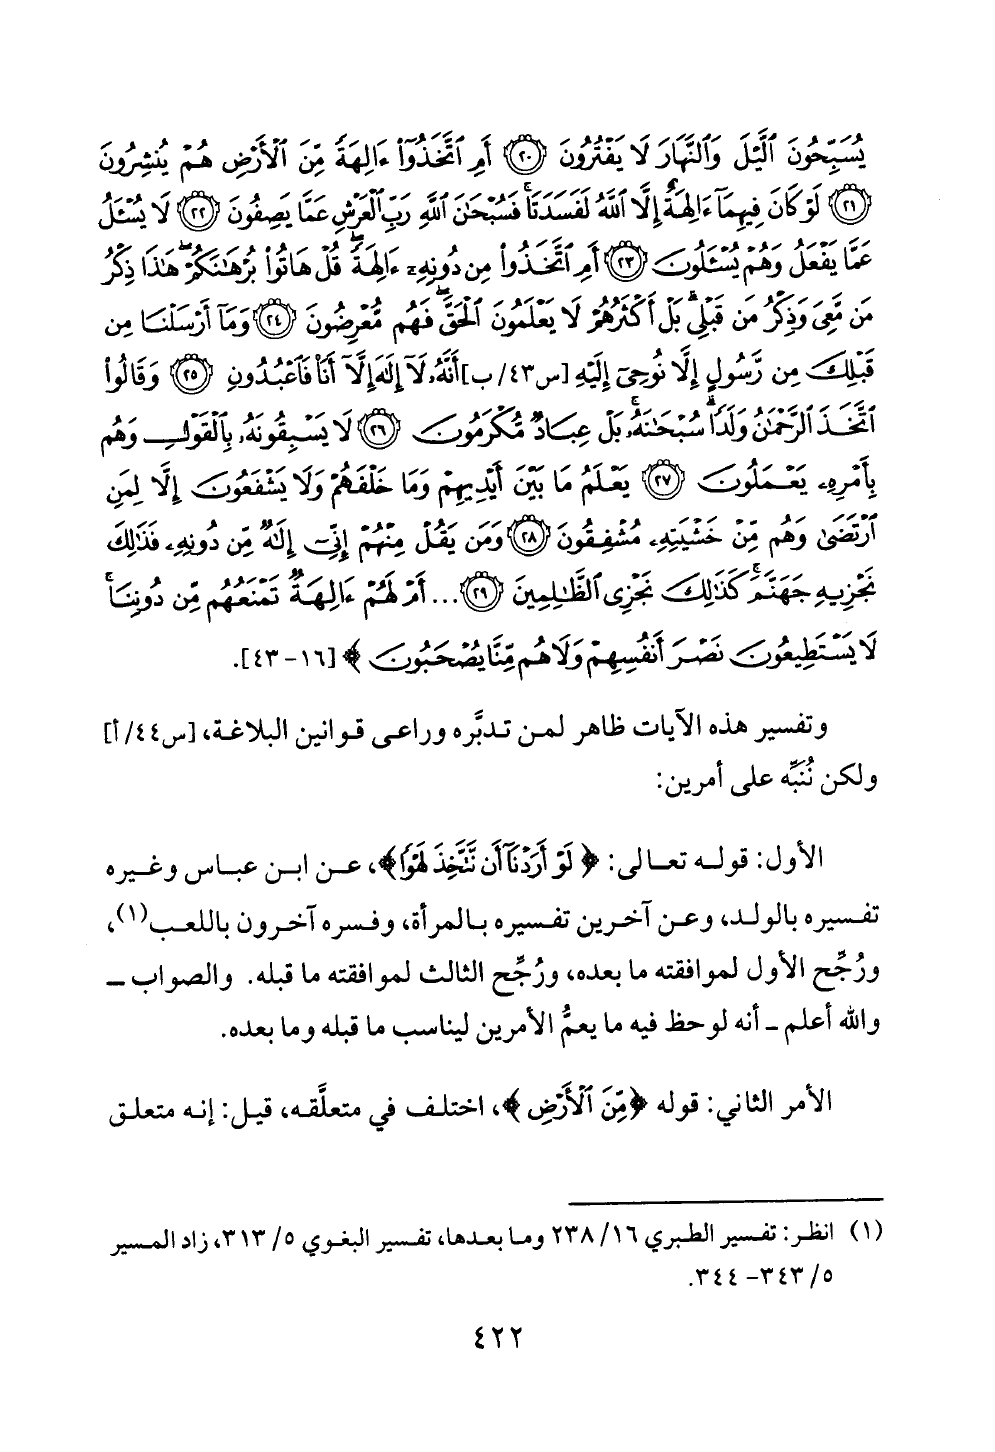 يُسَبِّحُونَ ٱلَّيْلَ وَٱلنَّهَارَ لَا يَفْتُرُونَ ﴿٢٠﴾ أَمِ ٱتَّخَذُوٓا۟ ءَالِهَةً مِّنَ ٱلْأَرْضِ هُمْ يُنشِرُونَ
﴿٢١﴾ لَوْ كَانَ فِيهِمَآ ءَالِهَةٌ إِلَّا ٱللَّهُ لَفَسَدَتَا ۚ فَسُبْحَٰنَ ٱللَّهِ رَبِّ ٱلْعَرْشِ عَمَّا يَصِفُونَ ﴿٢٢﴾ لَا يُسْـَٔلُ
عَمَّا يَفْعَلُ وَهُمْ يُسْـَٔلُونَ ﴿٢٣﴾ أَمِ ٱتَّخَذُوا۟ مِن دُونِهِۦٓ ءَالِهَةً ۖ قُلْ هَاتُوا۟ بُرْهَٰنَكُمْ ۖ هَٰذَا ذِكْرُ
مَن مَّعِىَ وَذِكْرُ مَن قَبْلِى ۗ بَلْ أَكْثَرُهُمْ لَا يَعْلَمُونَ ٱلْحَقَّ ۖ فَهُم مُّعْرِضُونَ ﴿٢٤﴾ وَمَآ أَرْسَلْنَا مِن
قَبْلِكَ مِن رَّسُولٍ إِلَّا نُوحِىٓ إِلَيْهِ [س٤٣/ب] أَنَّهُۥ لَآ إِلَٰهَ إِلَّآ أَنَا۠ فَٱعْبُدُونِ ﴿٢٥﴾ وَقَالُوا۟
ٱتَّخَذَ ٱلرَّحْمَٰنُ وَلَدًا ۗ سُبْحَٰنَهُۥ ۚ بَلْ عِبَادٌ مُّكْرَمُونَ ﴿٢٦﴾ لَا يَسْبِقُونَهُۥ بِٱلْقَوْلِ وَهُم
بِأَمْرِهِۦ يَعْمَلُونَ ﴿٢٧﴾ يَعْلَمُ مَا بَيْنَ أَيْدِيهِمْ وَمَا خَلْفَهُمْ وَلَا يَشْفَعُونَ إِلَّا لِمَنِ
ٱرْتَضَىٰ وَهُم مِّنْ خَشْيَتِهِۦ مُشْفِقُونَ ﴿٢٨﴾ وَمَن يَقُلْ مِنْهُمْ إِنِّىٓ إِلَٰهٌ مِّن دُونِهِۦ فَذَٰلِكَ
نَجْزِيهِ جَهَنَّمَ ۚ كَذَٰلِكَ نَجْزِى ٱلظَّٰلِمِينَ ﴿٢٩﴾ ... أَمْ لَهُمْ ءَالِهَةٌ تَمْنَعُهُم مِّن دُونِنَا ۚ
لَا يَسْتَطِيعُونَ نَصْرَ أَنفُسِهِمْ وَلَا هُم مِّنَّا يُصْحَبُونَ ﴾ [١٦-٤٣].
وتفسير هذه الآيات ظاهر لمن تدبَّره وراعى قوانين البلاغة، [س٤٤/أ]
ولكن نُنَبِّه على أمرين:
الأول: قوله تعالى: ﴿ لَوْ أَرَدْنَآ أَن نَّتَّخِذَ لَهْوًا ﴾، عن ابن عباس وغيره
تفسيره بالولد، وعن آخرين تفسيره بالمرأة، وفسره آخرون باللعب(١)،
ورُجِّح الأول لموافقته ما بعده، ورُجِّح الثالث لموافقته ما قبله. والصواب ـ
والله أعلم ـ أنه لوحظ فيه ما يعمُّ الأمرين ليناسب ما قبله وما بعده.
الأمر الثاني: قوله ﴿مِّنَ ٱلْأَرْضِ﴾، اختلف في متعلَّقه، قيل: إنه متعلق
(١) انظر: تفسير الطبري ١٦/ ٢٣٨ وما بعدها، تفسير البغوي ٥/ ٣١٣، زاد المسير
٥/ ٣٤٣-٣٤٤.
٤٢٢